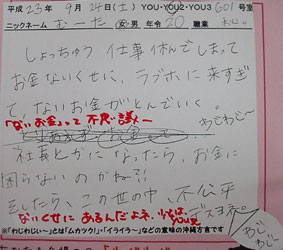 平成23年 9月24日(土) YOU・YOU2・YOU3 601号室
ニックネーム むーた 女・男 年令20 職業 わじ。
しょっちゅう 仕事休んでしまって
お金ないくせに、ラブホに来すぎ
て、ないお金がとんでいく。
「ないお金」って不思議〜
わじわじ〜
社長とかになったら、お金に
困らないのかね?!
としたら、この世の中、不公平
ないくせにあるんだよネ。
デスヨネ。
わじわじ
※「わじわじい〜」とは「ムカツク!」・「イライラ〜」などの意味の沖縄方言です